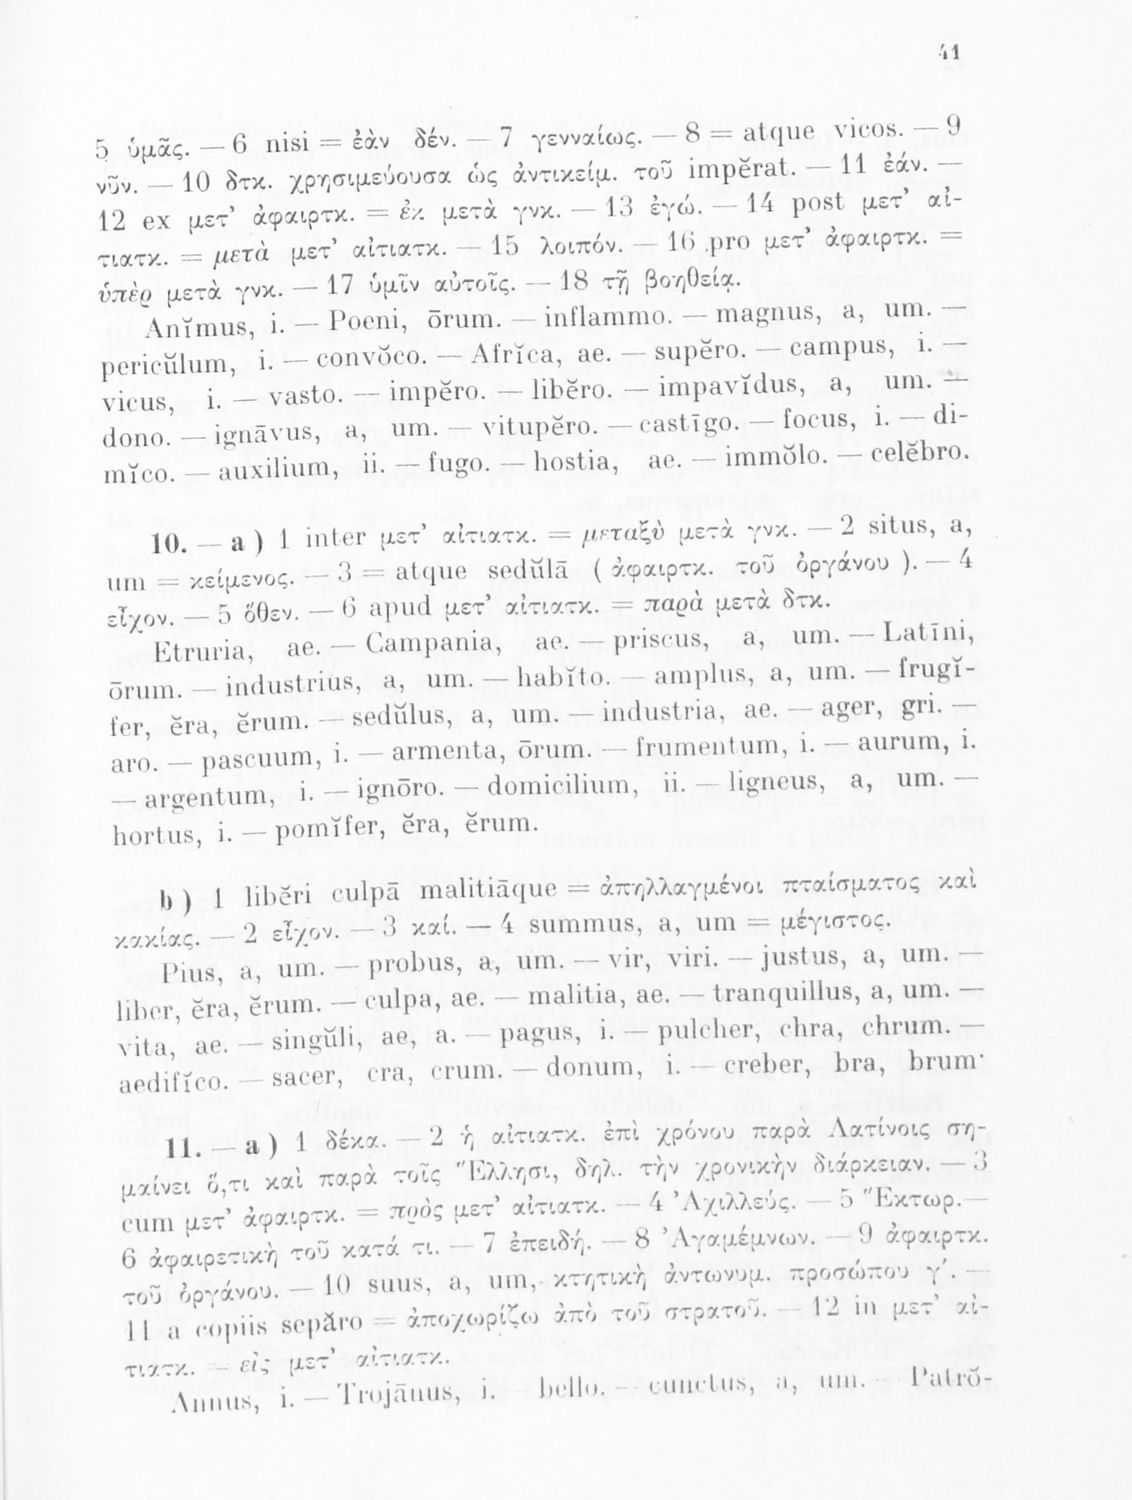 41
5 ὑμᾶς. — 6 nisi = ἐὰν δέν. — 7 γενναίως. — 8 = atque vicos. — 9
νῦν. — 10 δτκ. χρησιμεύουσα ὡς ἀντικείμ. τοῦ impĕrat. — 11 ἐάν. —
12 ex μετ’ ἀφαιρτκ. = ἐκ μετὰ γνκ. — 13 ἐγώ. — 14 post μετ’ αἰ-
τιατκ. = μετὰ μετ’ αἰτιατκ. — 15 λοιπόν. — 16 pro μετ’ ἀφαιρτκ. =
ὑπὲρ μετὰ γνκ. — 17 ὑμῖν αὐτοῖς. — 18 τῇ βοηθείᾳ.
Anĭmus, i. — Poeni, ōrum. — inflammo. — magnus, a, um. —
pericŭlum, i. — convŏco. — Afrĭca, ae. — supĕro. — campus, i. —
vicus, i. — vasto. — impĕro. — libĕro. — impavĭdus, a, um. —
dono. — ignāvus, a, um. — vitupĕro. — castīgo. — focus, i. — di-
mĭco. — auxilium, ii. — fugo. — hostia, ae. — immŏlo. — celĕbro.
10. — a ) 1 inter μετ’ αἰτιατκ. = μεταξὺ μετὰ γνκ. — 2 situs, a,
um = κείμενος. — 3 = atque sedŭlā ( ἀφαιρτκ. τοῦ ὀργάνου ). — 4
εἶχον. — 5 ὅθεν. — 6 apud μετ’ αἰτιατκ. = παρὰ μετὰ δτκ.
Etruria, ae. — Campania, ae. — priscus, a, um. — Latīni,
ōrum. — industrius, a, um. — habĭto. — amplus, a, um. — frugĭ-
fer, ĕra, ĕrum. — sedŭlus, a, um. — industria, ae. — ager, gri. —
aro. — pascuum, i. — armenta, ōrum. — frumentum, i. — aurum, i.
— argentum, i. — ignōro. — domicilium, ii. — ligneus, a, um. —
hortus, i. — pomĭfer, ĕra, ĕrum.
b ) 1 libĕri culpā malitiāque = ἀπηλλαγμένοι πταίσματος καὶ
κακίας. — 2 εἶχον. — 3 καί. — 4 summus, a, um = μέγιστος.
Pius, a, um. — probus, a, um. — vir, viri. — justus, a, um. —
liber, ĕra, ĕrum. — culpa, ae. — malitia, ae. — tranquillus, a, um. —
vita, ae. — singŭli, ae, a. — pagus, i. — pulcher, chra, chrum. —
aedifĭco. — sacer, cra, crum. — donum, i. — creber, bra, brum·
11. — a ) 1 δέκα. — 2 ἡ αἰτιατκ. ἐπὶ χρόνου παρὰ Λατίνοις ση-
μαίνει ὅ,τι καὶ παρὰ τοῖς Ἕλλησι, δηλ. τὴν χρονικὴν διάρκειαν. — 3
cum μετ’ ἀφαιρτκ. = πρὸς μετ’ αἰτιατκ. — 4 Ἀχιλλεύς. — 5 Ἕκτωρ. —
6 ἀφαιρετικὴ τοῦ κατά τι. — 7 ἐπειδή. — 8 Ἀγαμέμνων. — 9 ἀφαιρτκ.
τοῦ ὀργάνου. — 10 suus, a, um, κτητικὴ ἀντωνυμ. προσώπου γ΄. —
11 a copiis sepăro = ἀποχωρίζω ἀπὸ τοῦ στρατοῦ. — 12 in μετ’ αἰ-
τιατκ. = εἰς μετ’ αἰτιατκ.
Annus, i. — Trojānus, i. bello. — cunctus, a, um. — Patrŏ-